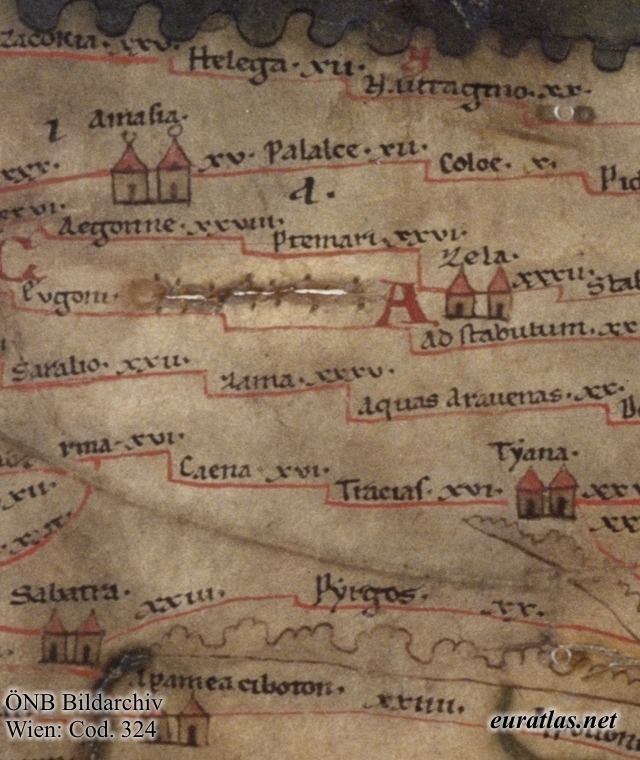 Zacoria. xxv.
Helega. xii.
xx.
Amasia.
xxx.
xv. Palalce. xii.
Coloe. x.
Pid
a.
xxvi.
Aegonne. xxviii.
Ptemari. xxvi.
Zela.
xxxii.
Stab
C
Eugoni.
A
Ad stabulum. xx
Saralio. xxii.
Zama. xxxv.
Aquas aravenas. xx.
rma. xvi.
Caena. xvi.
Tracias. xvi.
Tyana.
xxx
xii.
xx
Sabatra.
xxiii.
Pyrgos.
xx.
Apamea ciboton.
xxiiii.
ÖNB Bildarchiv
Wien: Cod. 324
euratlas.net